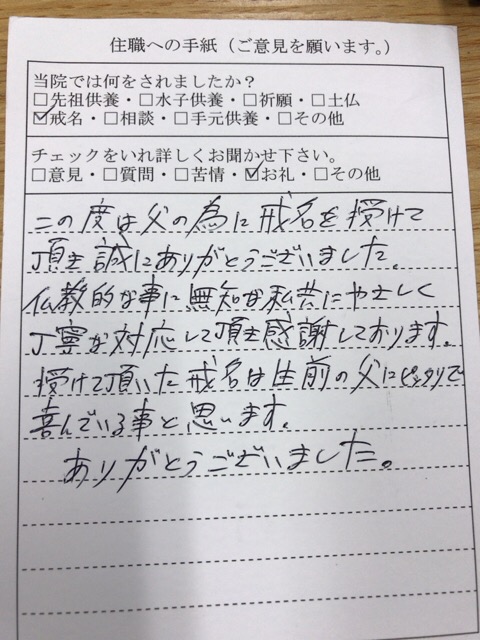 住職への手紙（ご意見を願います。）
当院では何をされましたか？
□先祖供養・□水子供養・□祈願・□土仏
☑戒名・□相談・□手元供養・□その他
チェックをいれ詳しくお聞かせ下さい。
□意見・□質問・□苦情・☑お礼・□その他
この度は父の為に戒名を授けて
頂き誠にありがとうございました。
仏教的な事に無知な私共にやさしく
丁寧な対応して頂き感謝しております。
授けて頂いた戒名は生前の父にピッタリで
喜んでいる事と思います。
ありがとうございました。